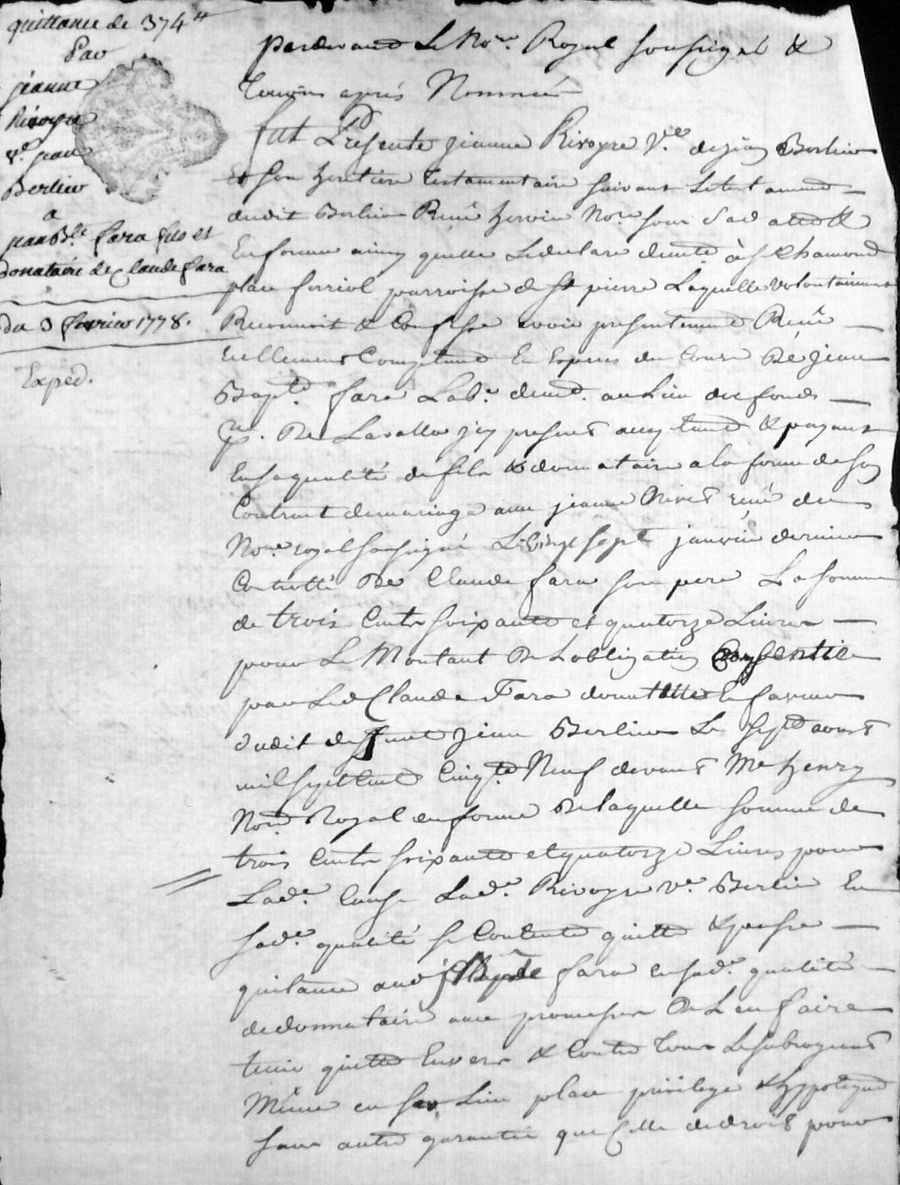 quittance de 374ᵗᵗ
Par
jeanne
Rivoyre
vᵉ jean
Berlier
a
jean Bᵗᵉ fara fils et
donataire de Claude fara
du 3 fevrier 1778.
Exped.
pardevant Le Noʳᵉ Royal soussigné &
Temoins aprés Nommés
fut Presente jeanne Rivoyre Vᵉ de jean Berlier
Et son heritiere testamentaire suivant Le testament
dudit Berlier Reçu
En forme ainsy quelle Le declare demᵗᵉ à Sᵗ Chamond
place forriol parroisse de Sᵗ pierre Laquelle volontairement
Reconnoit & Confesse avoir presentement Reçu
reellement Comptant En Especes de Cours De jean
Baptᵉ fara Labʳ demᵗ au Lieu des fonds
pˢˢᵉ De Lavalla jcy present acceptant & payant
En sa qualité de fils & donnataire a la forme de son
Contrat de mariage avec jeanne Rivat reçu du
Noʳᵉ royal soussigné Le vingt sept janvier dernier
Controllé De Claude fara son pere La somme
de trois Cents soixante et quatorze Livres
pour Le Montant De Lobligation Consentie
par Led Claude Fara En faveur
dudit deffunt jean Berlier Le sept aoust
mil sept Cent Cinqᵗᵉ Neuf devant Me henry
Noʳᵉ Royal en forme De laquelle somme de
trois Cents soixante et quatorze Livres pour
Ladᵉ Cause Ladᵉ Rivoyre Vᵉ Berlier En
sadᵉ qualité se Contente quitte & passe
quitance aud j Bapᵗᵉ fara en sadᵉ qualité
de donnataire avec promesse De L en faire
tenir quitte Envers & Contre Tous Le subrogeant
Même en ses Lieu place privilege & hypoteque
sans autre garantie que Celle de droit pour